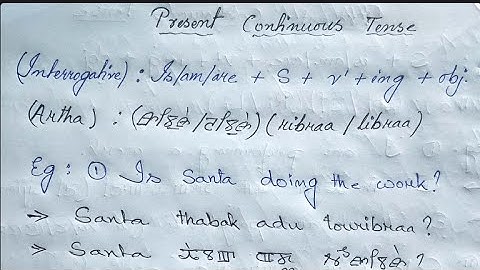 Present Continuous Tense
(Interrogative) : Is/am/are + S + v' + ing + obj.
(Artha) : (ribraa / libraa)
Eg : ① Is Santa doing the work?
→ Santa thabak adu touribraa?
→ Santa